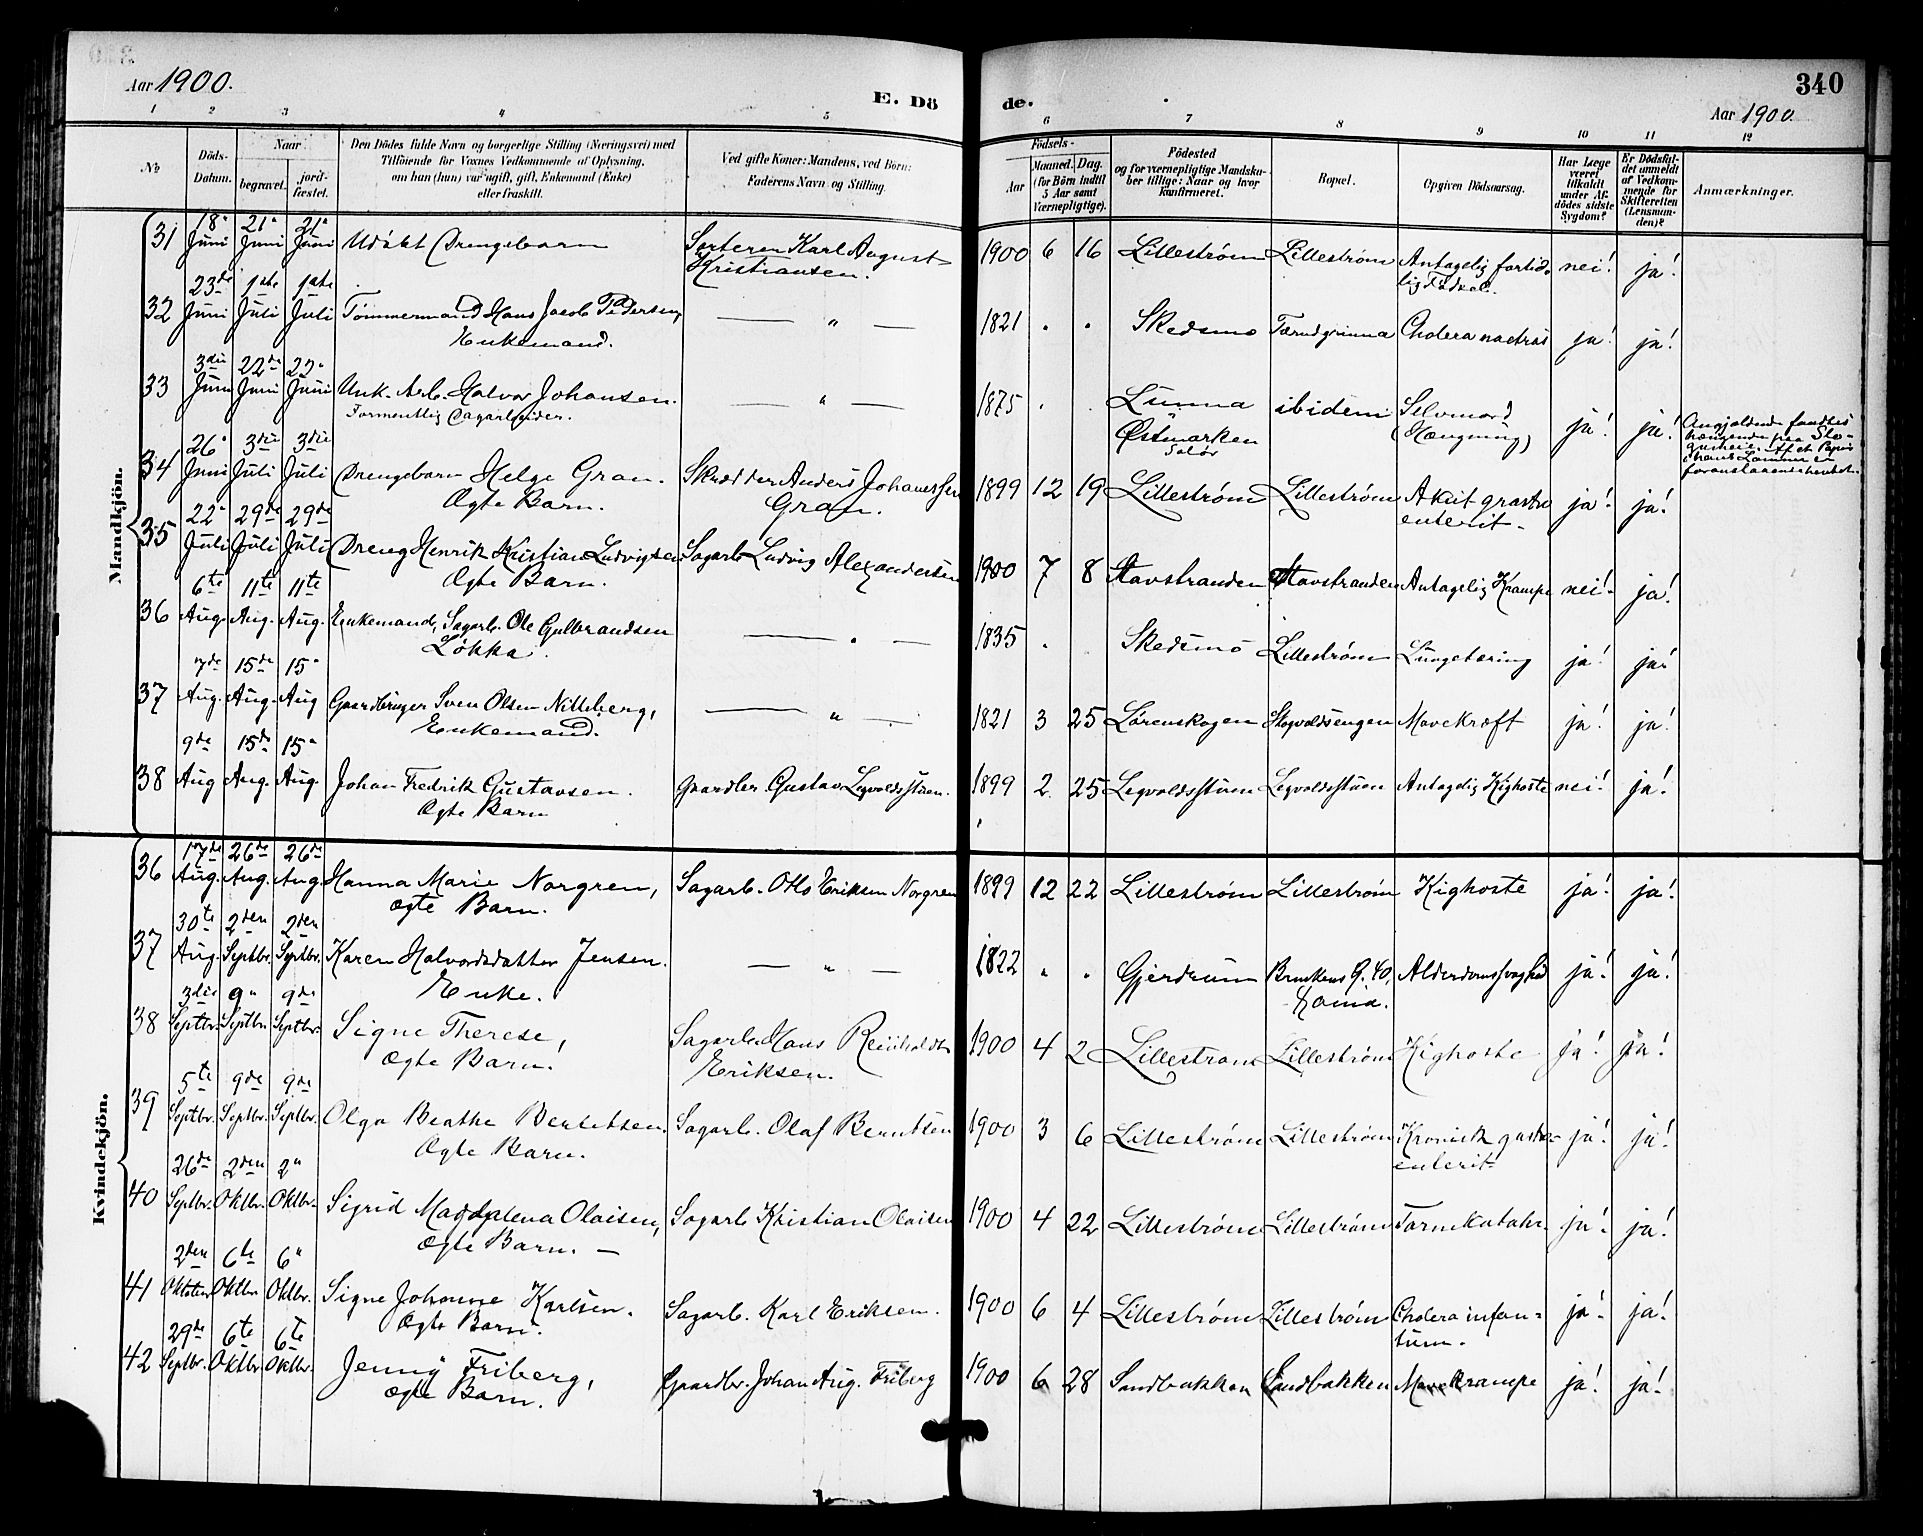 340
Aar 1900.
E. Dö
de.
Aar 1900.
1 2 3 4 5 6 7 8 9 10 11 12
No
Döds-
Datum.
Naar
begravet.
jord-
fæstet.
Den Dödes fulde Navn og borgerlige Stilling (Næringsvei) med
Tilföiende for Voxnes Vedkommende af Oplysning,
om han (hun) var ugift, gift, Enkemand (Enke)
eller fraskilt.
Ved gifte Koner: Mandens, ved Börn:
Faderens Navn og Stilling.
Födsels-
Aar
Maaned. Dag.
(for Börn indtil
5 Aar samt
Værnepligtige).
Födested
og for værnepligtige Mandska-
ber tillige: Naar og hvor
konfirmeret.
Bopæl.
Opgiven Dödsaarsag.
Har Læge
været
tilkaldt
under Af-
dödes sidste
Sygdom?
Er Dödsfal-
det anmeldt
af Vedkom-
mende for
Skifteretten
(Lensman-
den)?
Anmærkninger.
Mandkjön.
31 18" Juni 21" Juni 21" Juni Udöbt Drengebarn Sorterer Karl August 1900 6 16 Lillestrøm Lillestrøm Antagelig fortid- nei! ja!
Kristiansen. lig Fødsel.
32 23de Juni 1ste Juli 1ste Juli Tømmermand Hans Jacob Pedersen, — " — 1821 " " Skedsmo Cholera nostras ja! ja!
Enkemand.
33 3die Juni 22de Juni 22" Juni Unk. Arb. Halvor Johansen. — " — 1875 . . Lunna ibidem Selvmord ja! ja!
Formentlig Dagarbeider. Østmarken (Hængning)
Solör
Angjældende fandtes
hængende paa
34 26" Juni 3die Juli 3die Juli Drengebarn Helge Gran. Skrædder Anders Johannessen 1899 12 19 Lillestrøm Lillestrøm Akut gastro ja! ja!
Ægte Barn. Gran. enterit-
35 22" Juli 29de Juli 29de Juli Dreng Henrik Kristian Ludvigsen Sagarb. Ludvig Alexandersen 1900 7 8 Stavstranden Stavstranden Antagelig Krampe nei! ja!
Ægte Barn.
36 6te Aug. 11te Aug. 11te Aug. Enkemand, Sagarb. Ole Gulbrandsen — " — 1835 . Skedsmo Lillestrøm Lungetæring ja! ja!
Løkka.
37 7de Aug. 15de Aug. 15" Aug Gaardbruger Sven Olsen Nitteberg, — " — 1821 3 25 Lørenskogen Mavekræft ja! ja!
Enkemand.
38 9de Aug 15de Aug. 15" Aug. Johan Fredrik Gustavsen. Gaardbr. Gustav 1899 2 25 Antagelig Kighoste nei! ja!
Ægte Barn
Kvindekjön.
36 17de Aug. 26de Aug. 26de Aug. Hanna Marie Norgren, Sagarb. Otto Eriksen Norgren 1899 12 22 Lillestrøm Lillestrøm Kighoste ja! ja!
ægte Barn.
37 30te Aug. 2den Septbr. 2den Septbr. Karen Halvordsdatter Jensen. — " — 1822 " " Gjerdrum G. 40, Alderdomssvaghed ja! ja!
Enke.
38 3die Septbr. 9" Septbr. 9de Septbr. Signe Therese, Sagarb. Hans Reinholdt 1900 4 2 Lillestrøm Lillestrøm Kighoste ja! ja!
Ægte Barn. Eriksen.
39 5te Septbr. 9de Septbr. 9de Septbr. Olga Beathe Berntsen. Sagarb. Olaf Berntsen 1900 3 6 Lillestrøm Lillestrøm Kronisk gastro- ja! ja!
Ægte Barn. enterit
40 26de Septbr. 2den Oktbr. 2" Oktbr. Sigrid Magdalena Olaisen, Sagarb Kristian Olaisen 1900 4 22 Lillestrøm Lillestrøm Tarmkatahr. ja! ja!
ægte Barn. —
41 2den Oktober 6te Oktbr 6" Oktbr. Signe Johanne Karlsen. Sagarb. Karl Eriksen. 1900 6 4 Lillestrøm Lillestrøm Cholera infan- ja! ja!
Ægte Barn. tum.
42 29de Septbr. 6te Oktbr 6te Oktbr. Jenny Friberg, Gaardbr. Johan Aug. Friberg 1900 6 28 Sandbakken Sandbakken Mavekrampe ja! ja!
ægte Barn.